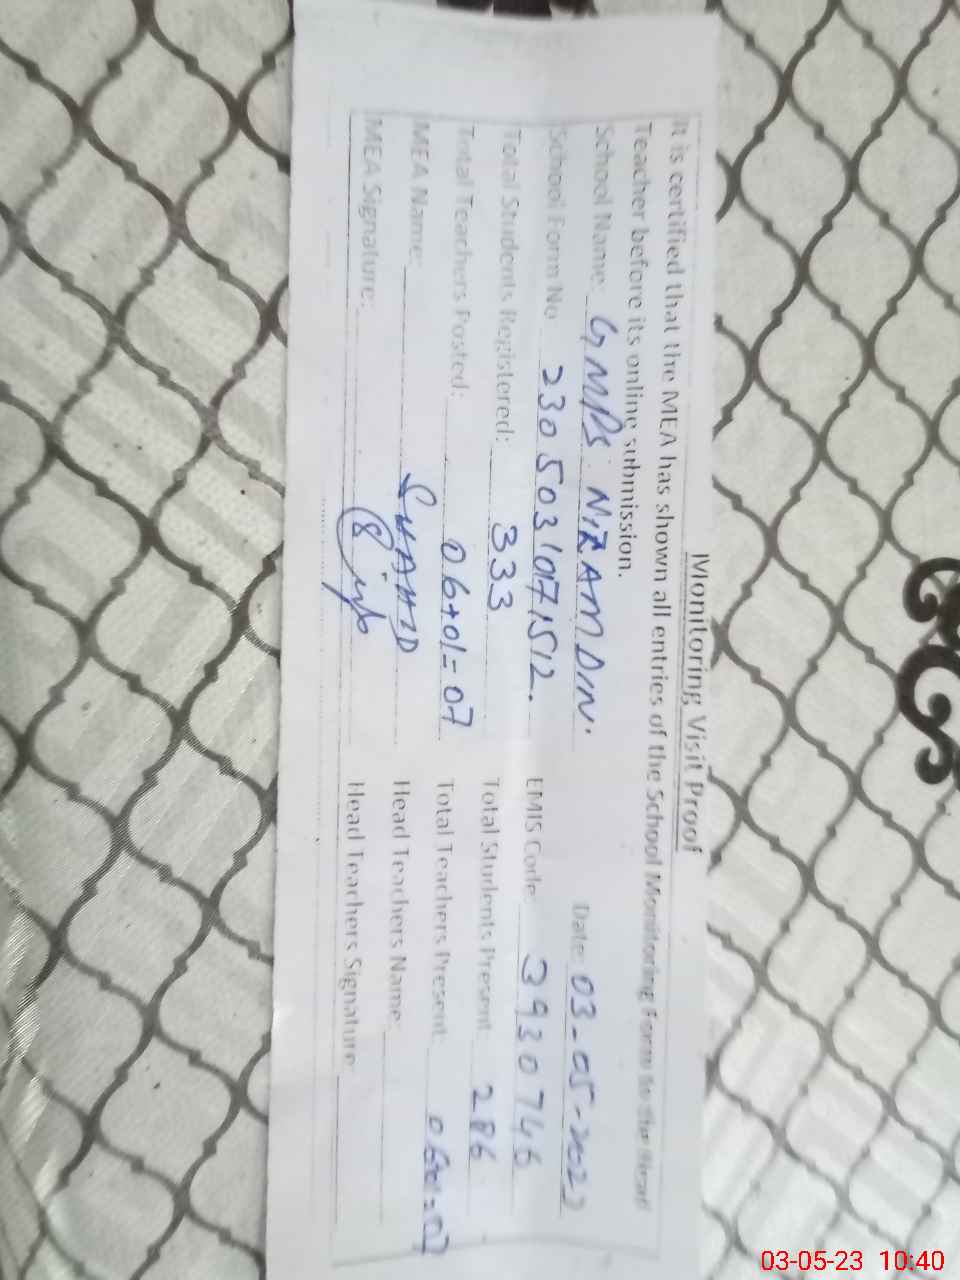 Monitoring Visit Proof
It is certified that the MEA has shown all entries of the School Monitoring Form to the Head
Teacher before its online submission.
School Name: GMPS NIZAM DIN. Date: 03-05-2023
School Form No 2305031071512. EMIS Code 3930746
Total Students Registered: 333 Total Students Present 286
Total Teachers Posted: 06+01=07 Total Teachers Present: 06+01=07
MEA Name: SHAHID Head Teachers Name:
MEA Signature: Head Teachers Signature:
03-05-23 10:40